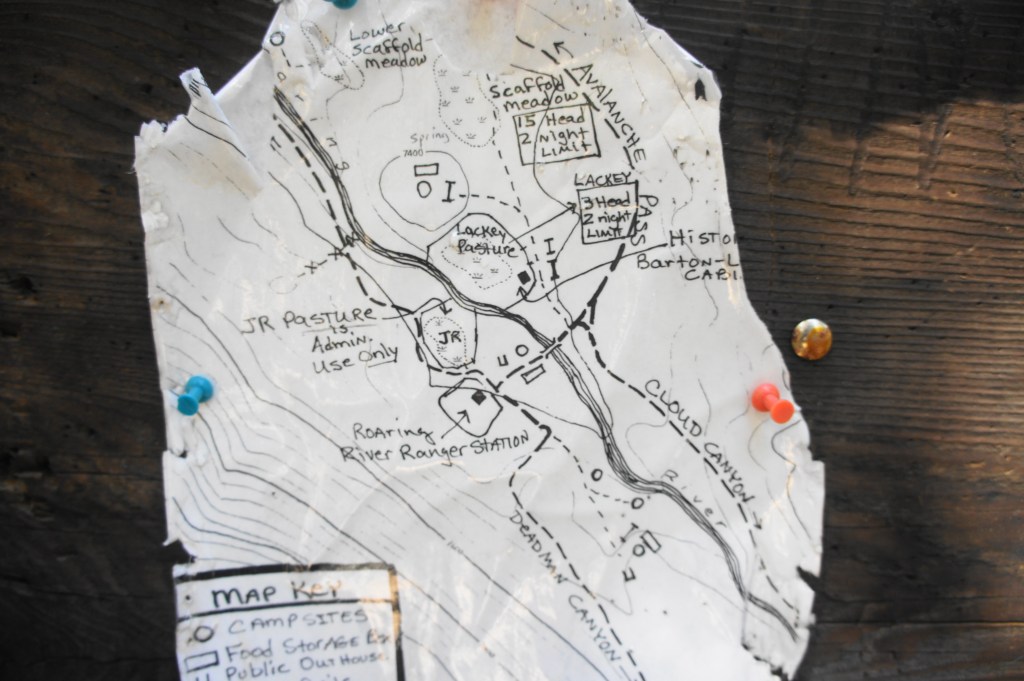 Lower
Scaffold
meadow
Scaffold
meadow
15 Head
2 night
LIMIT
AVALANCHE PASS
Spring
7400
LACKEY
3 Head
2 night
LIMIT
Lackey
Pasture
Histo
Barton-L
CABI
JR PASTURE
is
Admin.
Use Only
JR
Roaring
River Ranger STATION
CLOUD CANYON
River
DEADMAN CANYON
MAP KEY
CAMPSITES
Food STORAGE
Public OutHouse